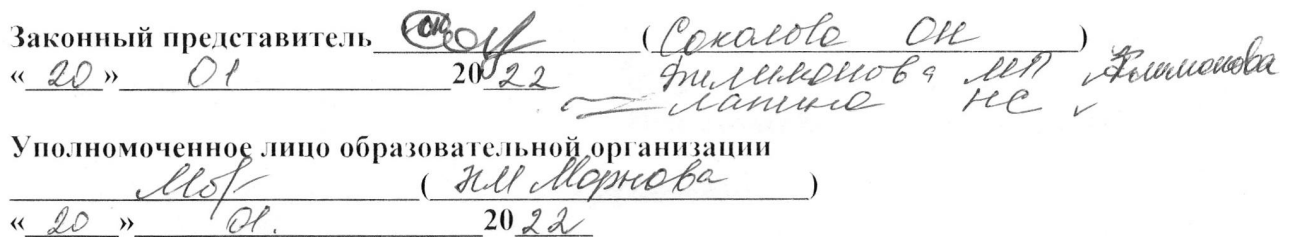 Законный представитель (Соколова ОН)
« 20 » 01 20 22 Филимонова МП Филимонова
Лапина НС
Уполномоченное лицо образовательной организации
( НМ )
« 20 » 01. 20 22